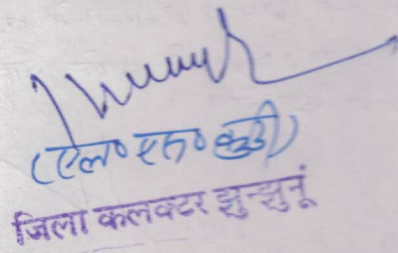 (एल० एन० कुड़ी)
जिला कलक्टर झुन्झुनूं